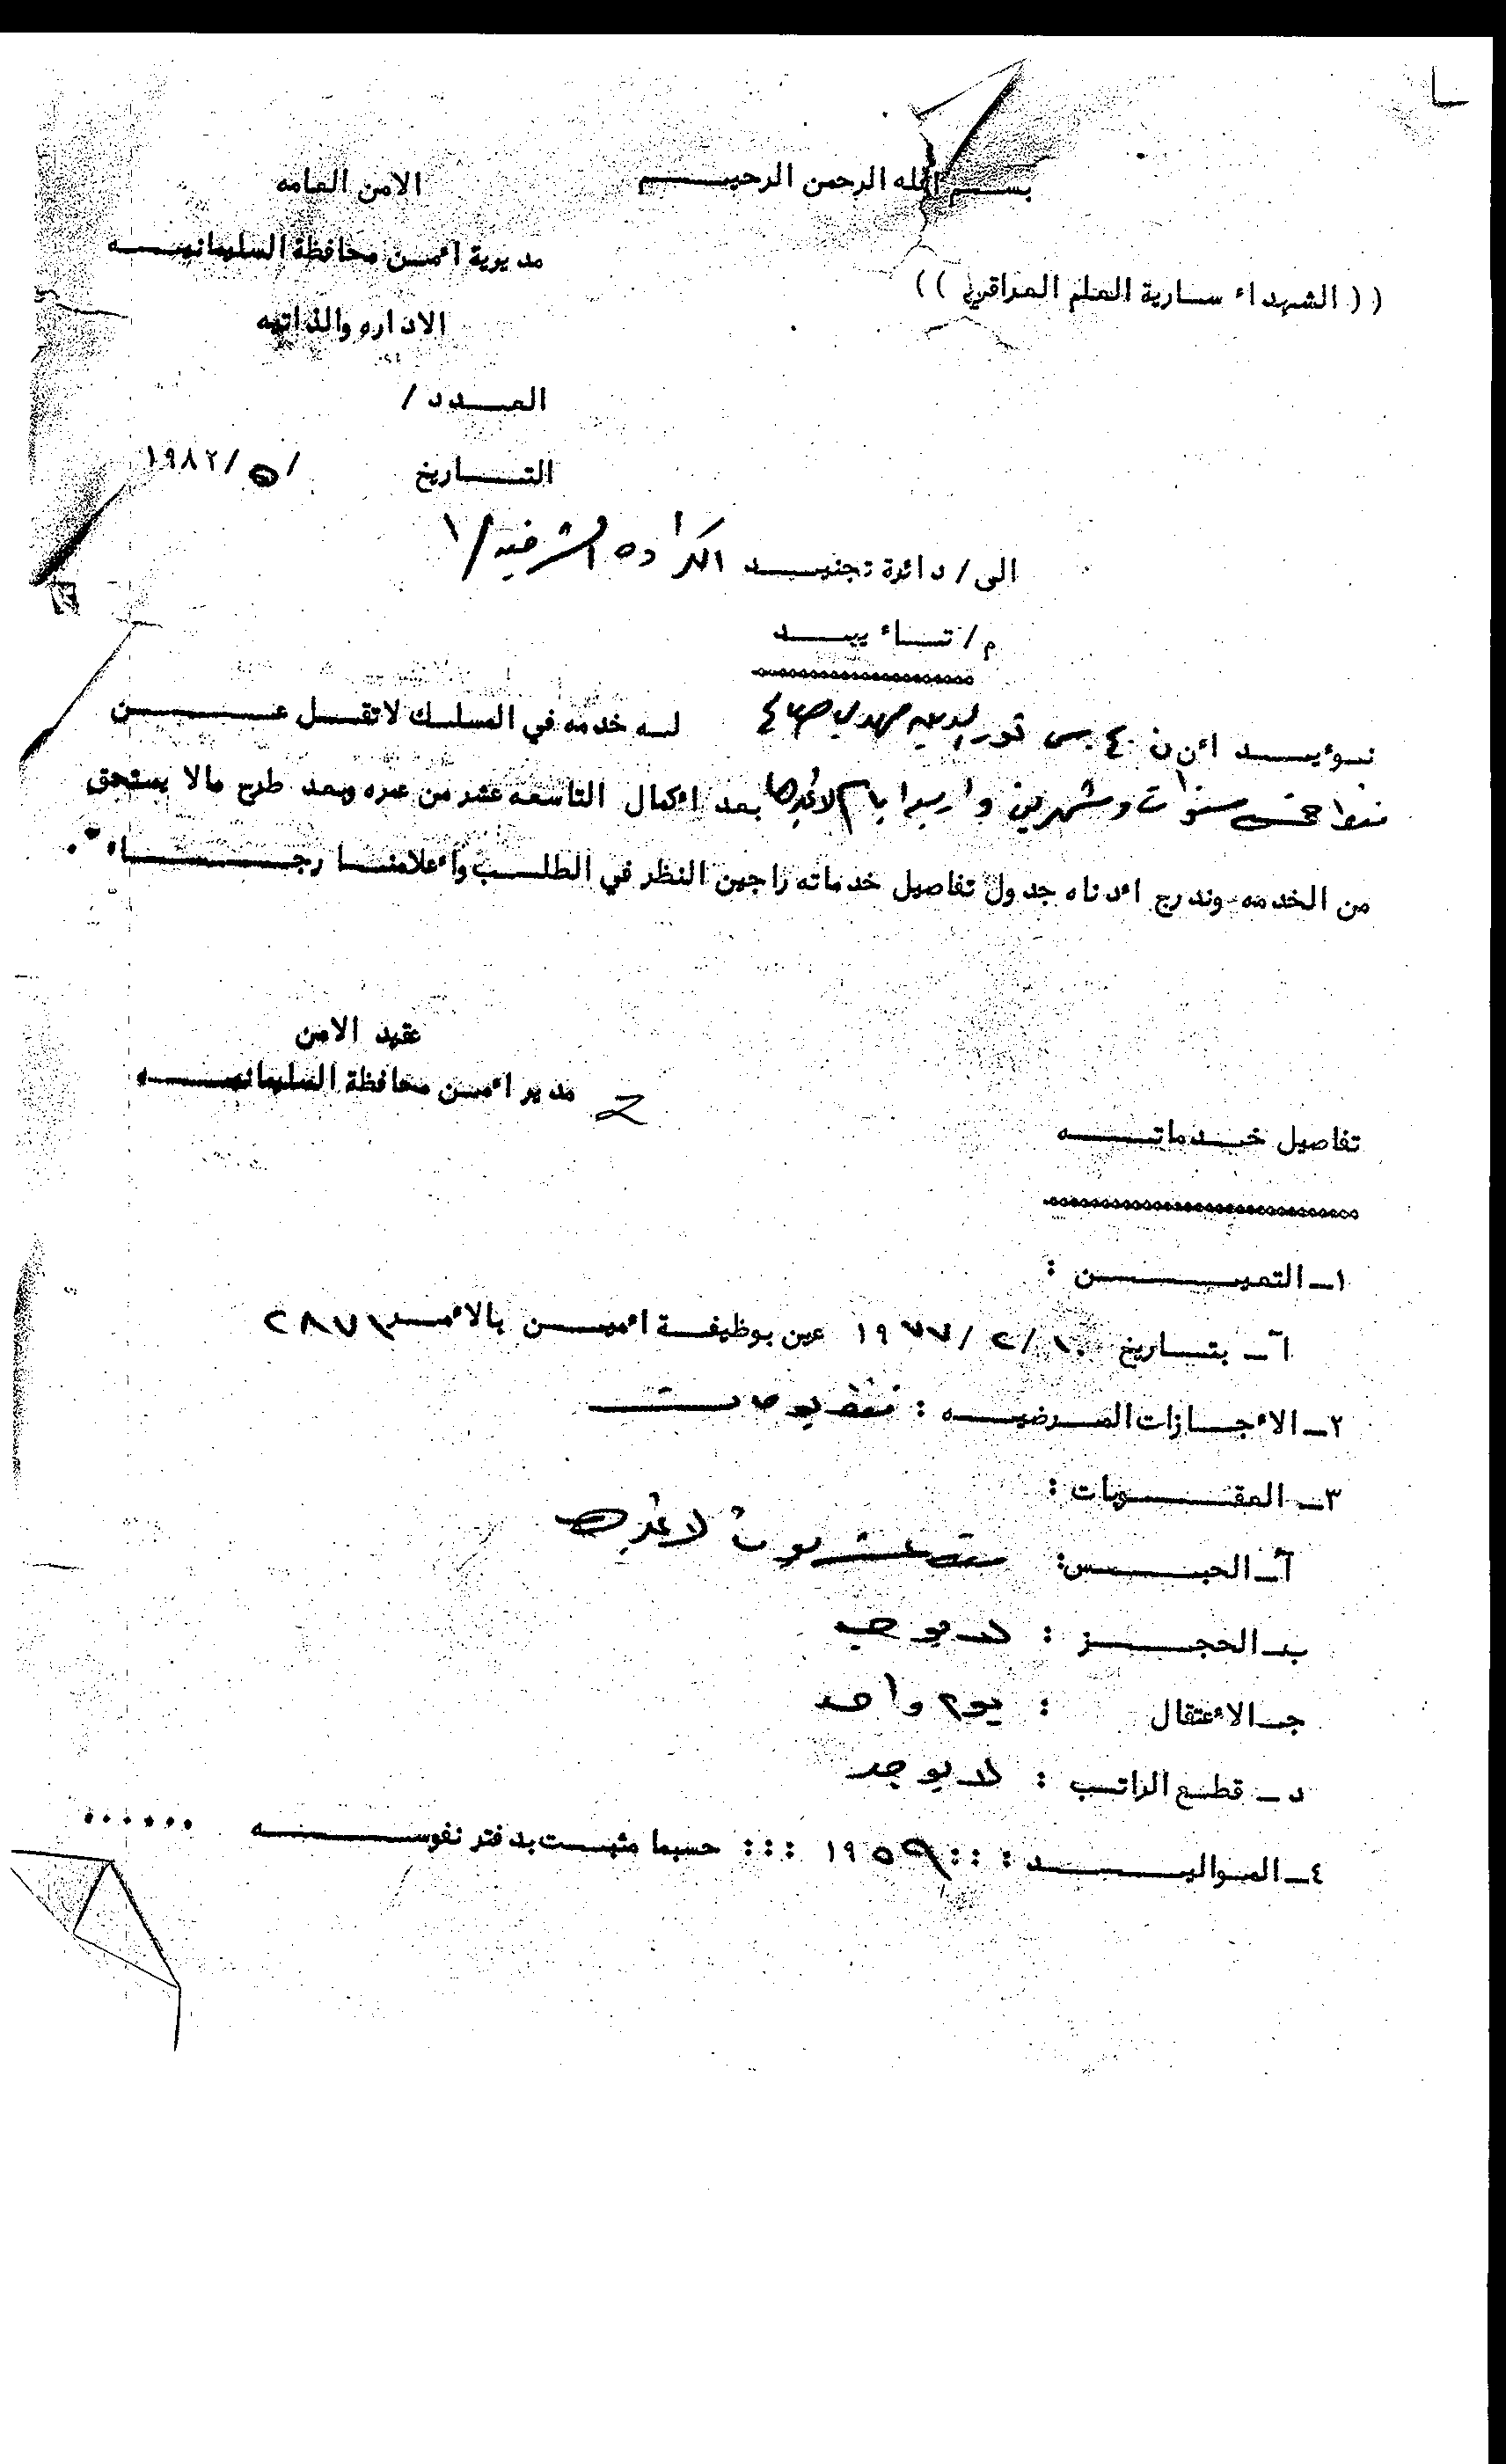 بسم الله الرحمن الرحيم
الامن العامه
مديرية اءمن محافظة السليمانيه
(( الشهداء سارية العلم العراقي ))
الاداره والذاتيه
العدد /
التاريخ / ٥ /١٩٨٢
الى / دائرة تجنيد الكراده الشرقيه /١
م / تاءييد
نوءيد اءن ن ع س نور الدين مهدي له خدمه في المسلك لاتقل عن
خمس سنوات وشهرين واربعه ايام لاغيرها بعد اءكمال التاسعه عشر من عمره وبعد طرح مالا يستحق
من الخدمه وندرج اءدناه جدول تفاصيل خدماته راجين النظر في الطلب واءعلامنا رجاء .
عقيد الامن
مدير اءمن محافظة السليمانيه
تفاصيل خدماته
١ـ التعين :
آ ـ بتاريخ ١٠ /٢ /١٩٧٧ عين بوظيفة اءمين بالاءمر ٢٨٧١
٢ـ الاءجازات المرضيه : فقط
٣ـ العقوبات :
أـ الحبس: ستة عشر يوم لاغيرها
بـ الحجز : لايوجد
جـ الاءعتقال : يوم واحد
د ـ قطع الراتب : لايوجد
٤ـ المواليد : : : ١٩٥٩ : : : حسبما مثبت بدفتر نفوسه ......